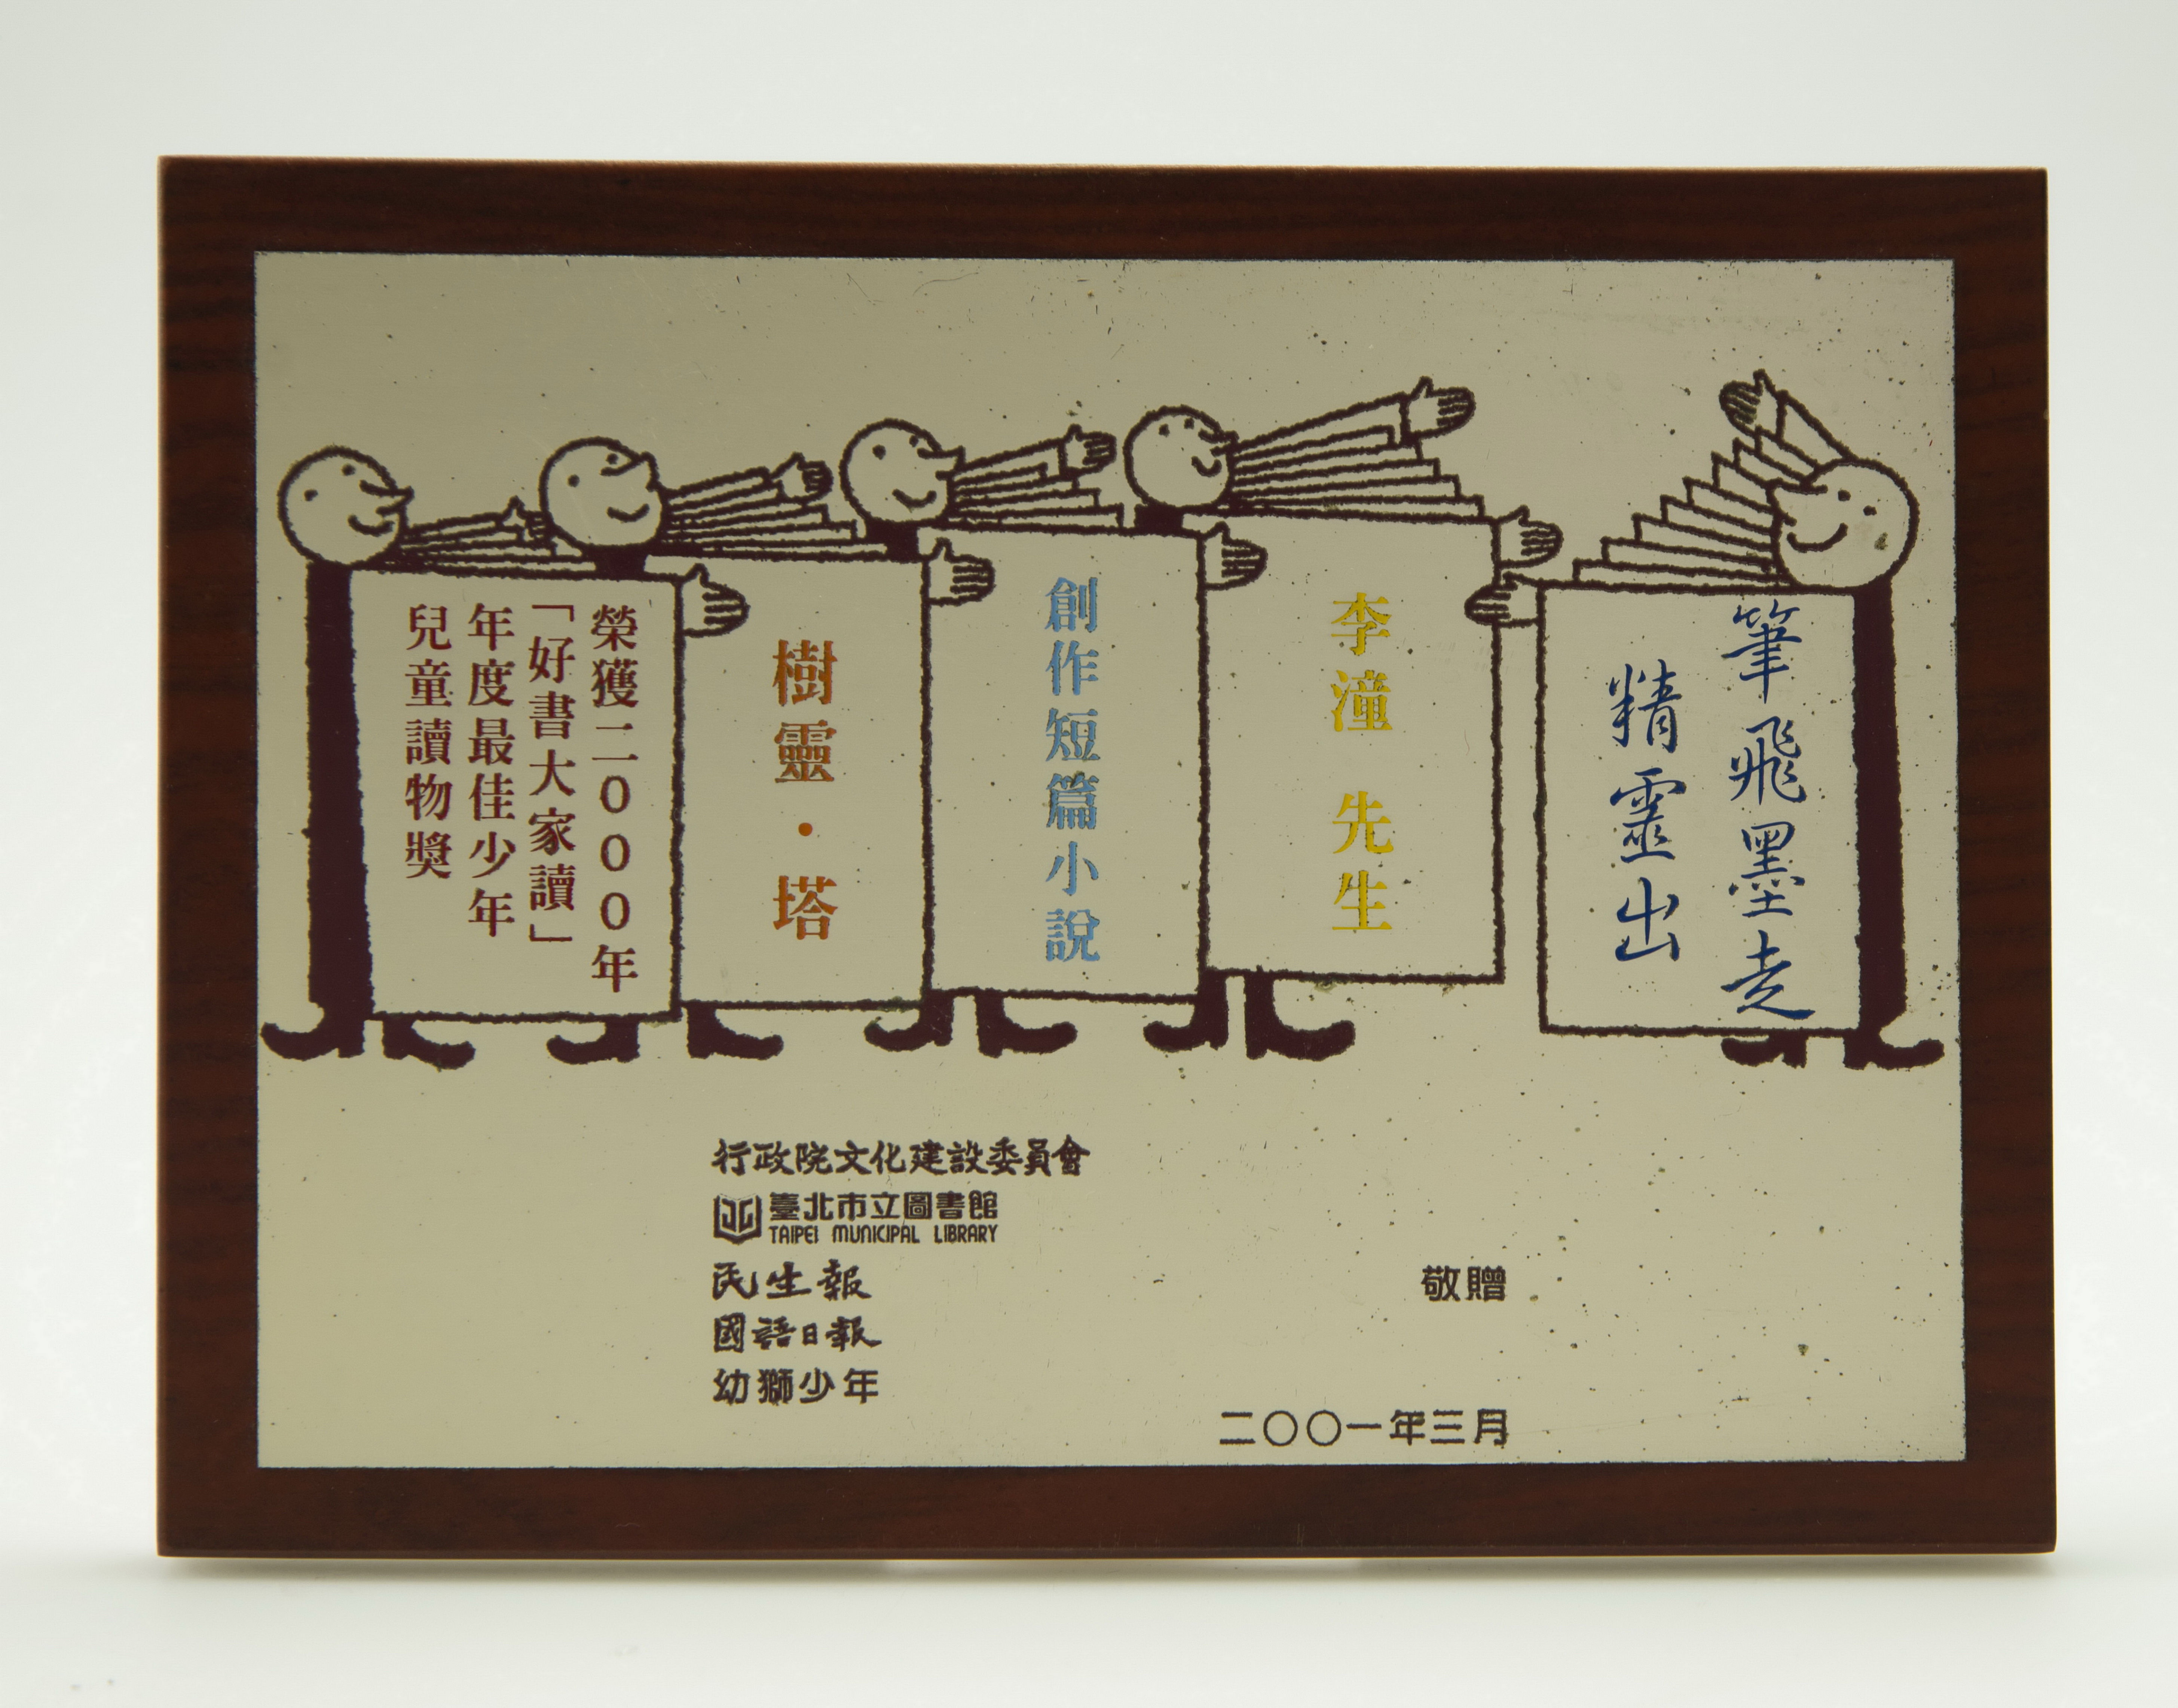 筆飛墨走
精靈出
李潼 先生
創作短篇小說
樹靈・塔
榮獲二000年
「好書大家讀」
年度最佳少年
兒童讀物獎
行政院文化建設委員會
臺北市立圖書館
TAIPEI MUNICIPAL LIBRARY
民生報
國語日報
幼獅少年
敬贈
二〇〇一年三月